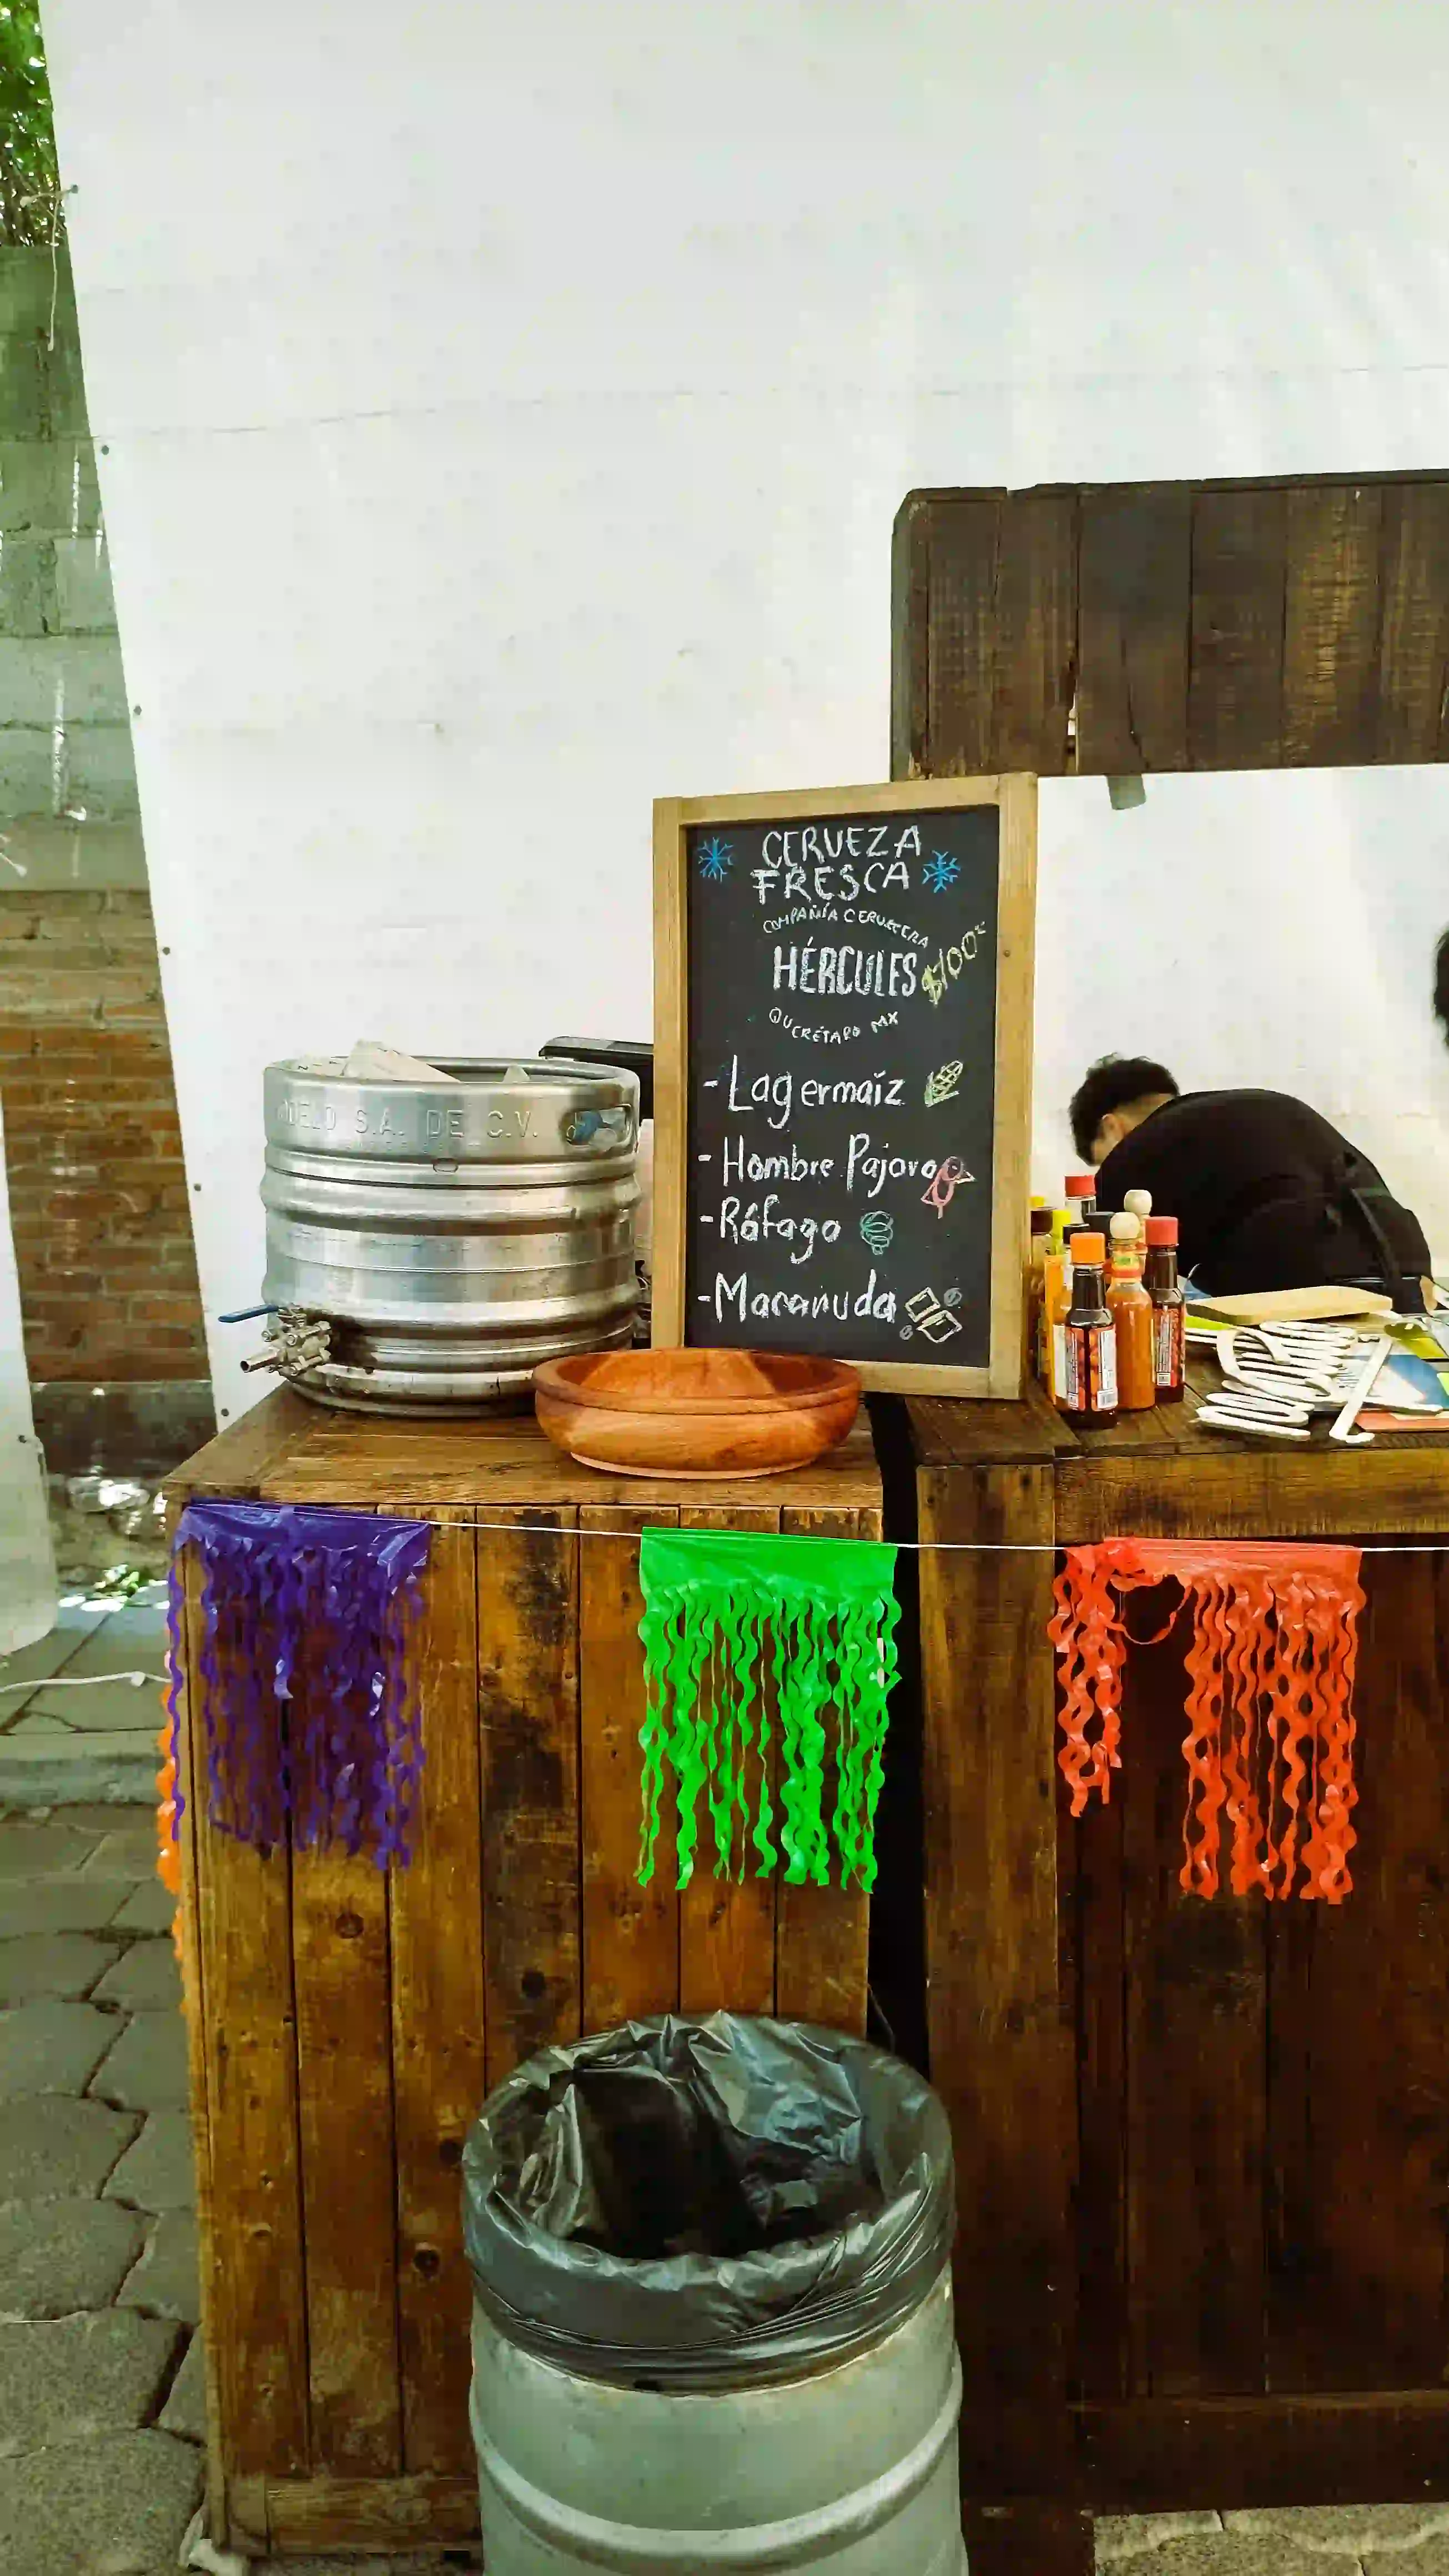 CERVEZA
FRESCA
COMPAÑÍA CERVECERA
HÉRCULES
$100
QUERÉTARO MX
- Lagermaíz
- Hombre Pájaro
- Ráfaga
- Macanuda
ODELO S.A. DE C.V.